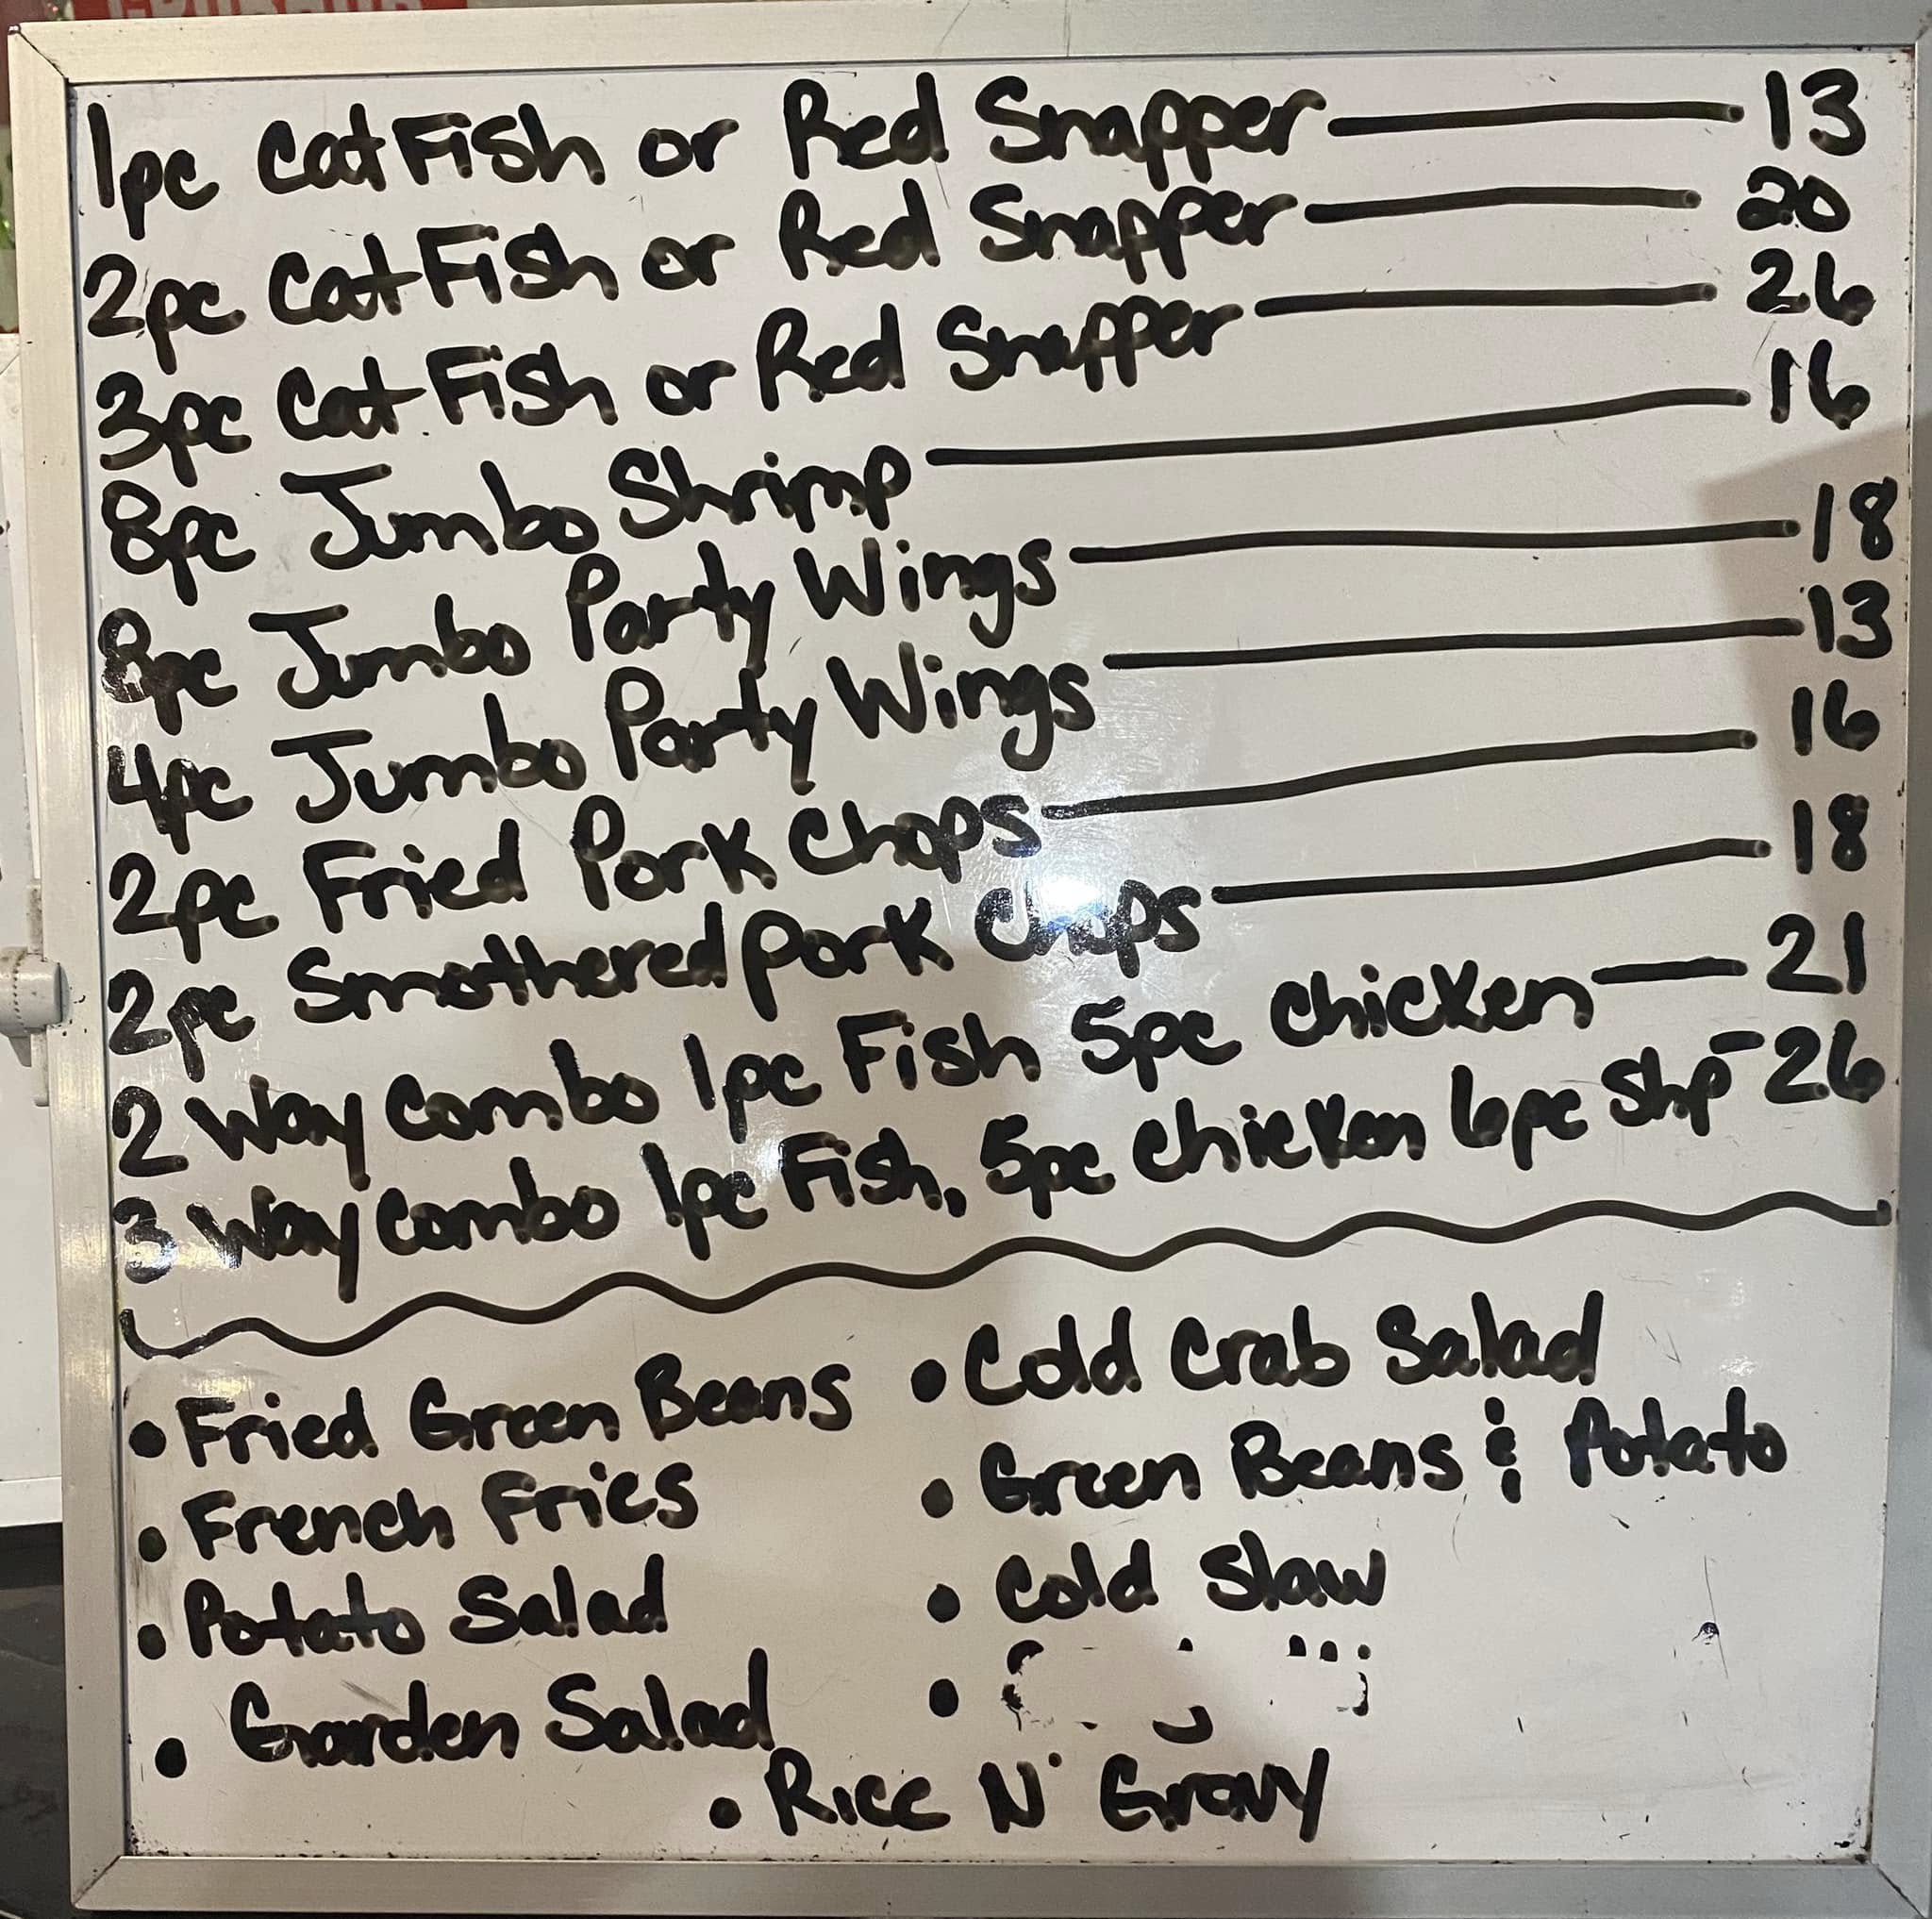 1pc CatFish or Red Snapper — 13
2pc CatFish or Red Snapper — 20
3pc CatFish or Red Snapper — 26
8pc Jumbo Shrimp — 16
8pc Jumbo Party Wings — 18
4pc Jumbo Party Wings — 13
2pc Fried Pork Chops — 16
2pc Smothered Pork Chops — 18
2 Way Combo 1pc Fish 5pc Chicken — 21
3 Way Combo 1pc Fish, 5pc Chicken 6pc Shp - 26
• Fried Green Beans
• French Fries
• Potato Salad
• Garden Salad
• Cold Crab Salad
• Green Beans & Potato
• Cold Slaw
• Rice N' Gravy